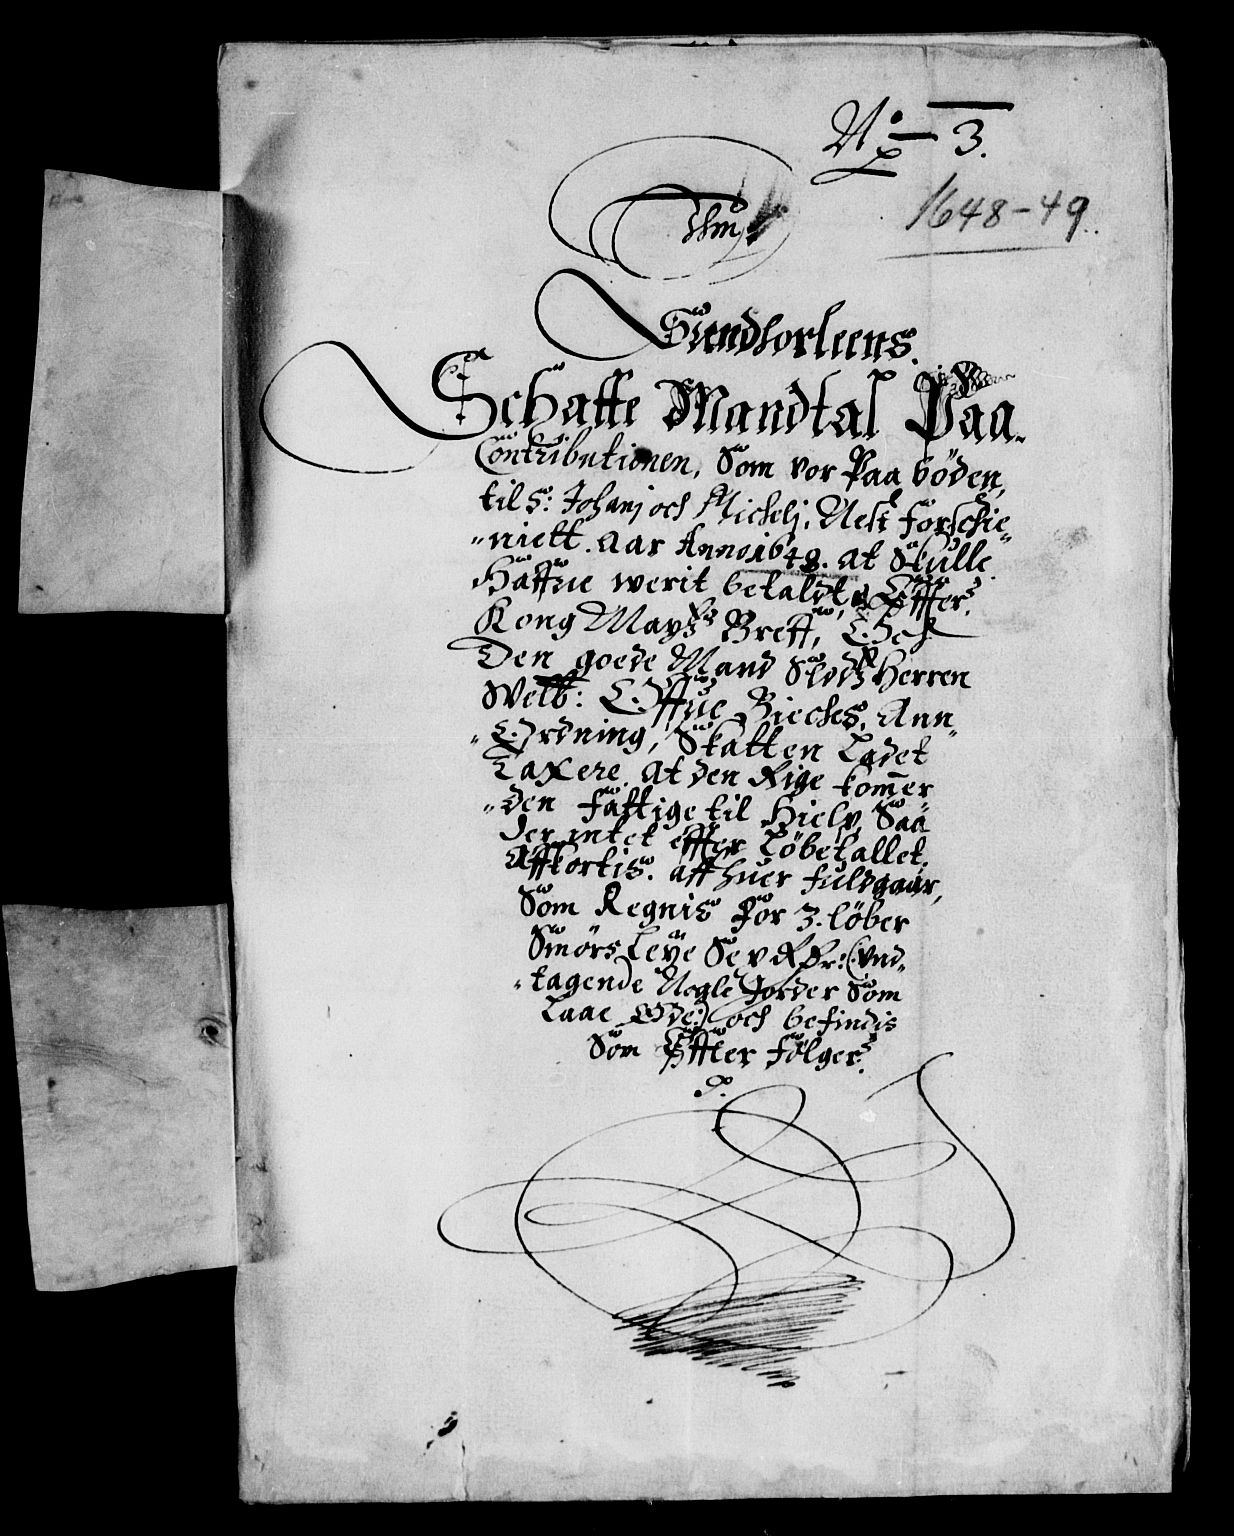 No 3.
1648-49.
Sundhorleens.
Schatte Mandtal Paa
Contributionen, Som vor Paaböden,
til S: Johanj och Michelj, Nest forschie„
„niett. aar Anno 1648. at Skulle
Haffue werit betaldt, Effter
Kong Maytz Breff, Och
Den goede Mand Slodtz Herren
Welb: Offue Bielches, Ann„
„Ordning, Skatten Ladet
Taxere, At den Rige kommer
„den fattige til Hielp, Saa
der intet effter Löbetallet
Affkortis. aff huer fuldgaar,
Som Regnis for 3. löber
Smörs Leye Sex Rdr: (vnd„
„tagende Nogle Jorder Som
Laae Øde:) och befindis
Som Effter fölger.